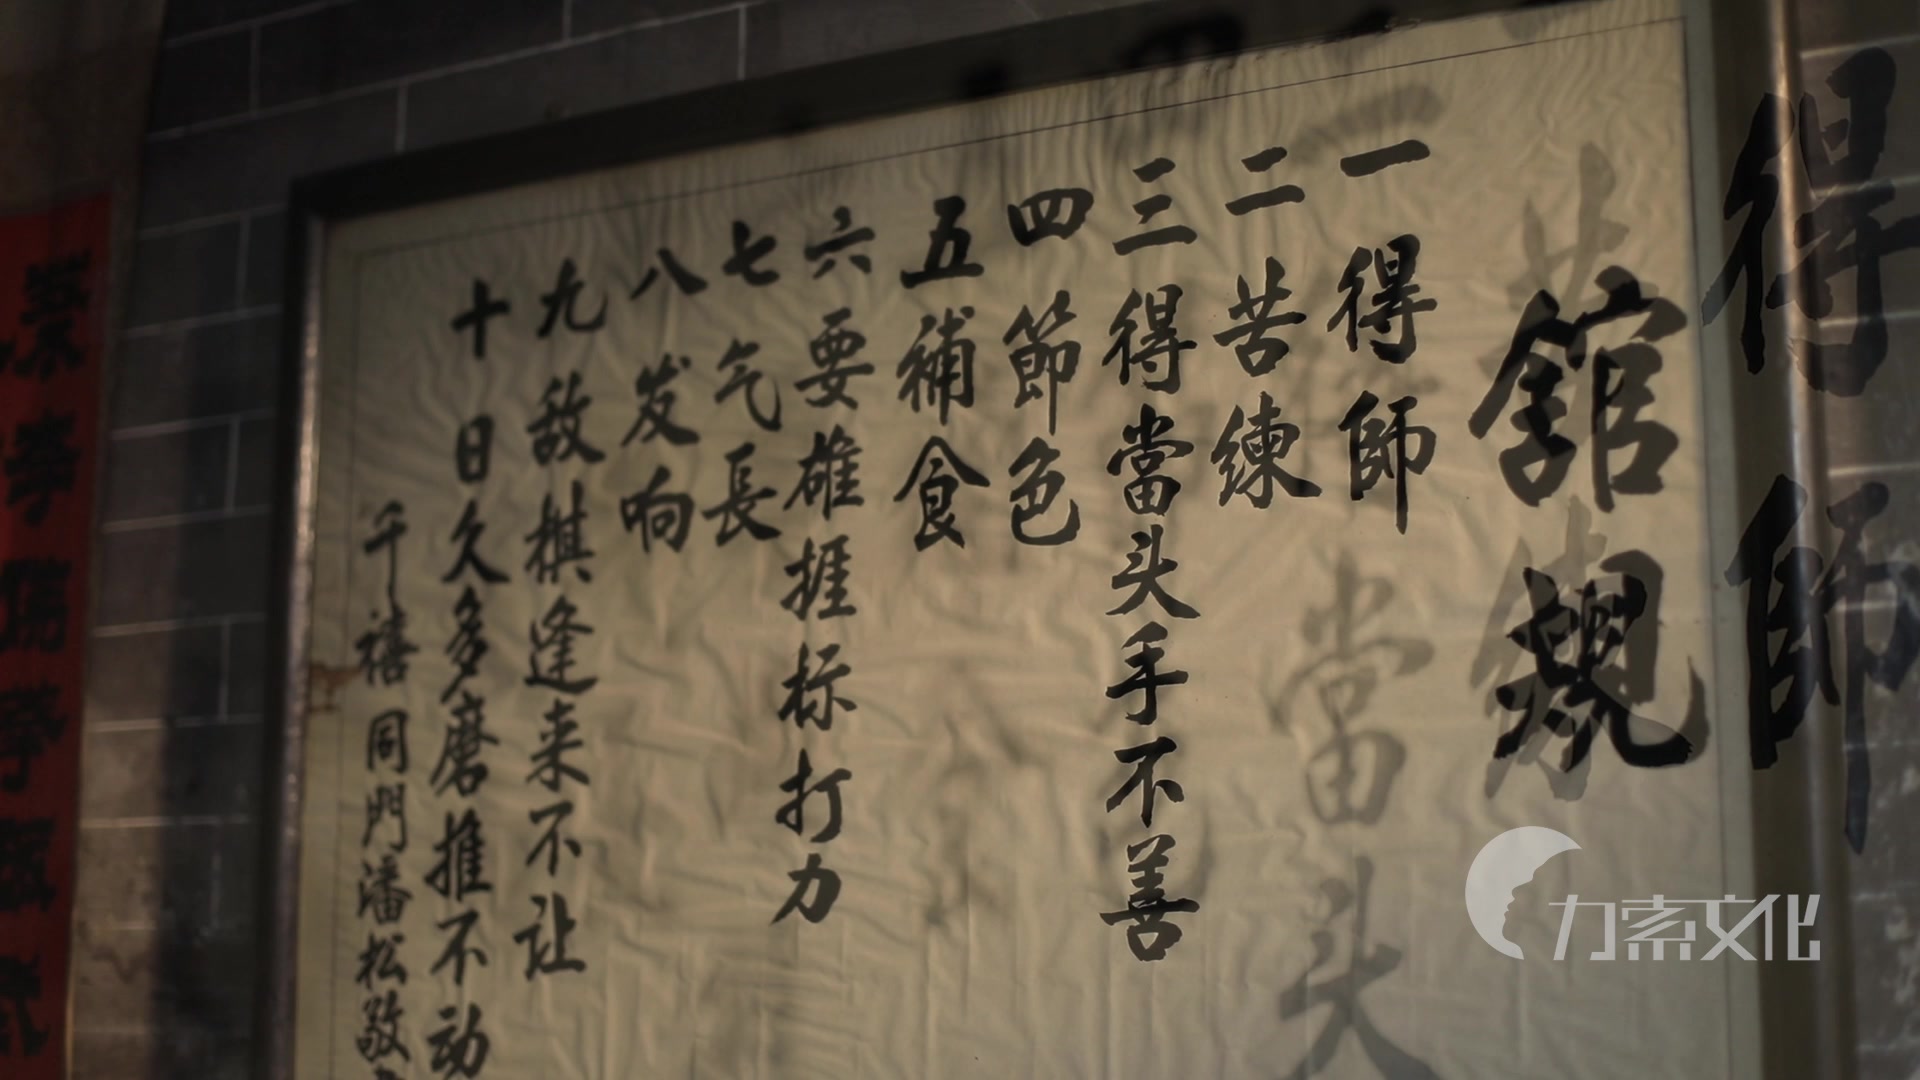 館規
一得師
二苦練
三得當头手不善
四節色
五補食
六要雄捱标打力
七气長
八发响
九敌棋逢来不让
十日久多磨推不动
千禧同門潘松敬
得師
當头
力索文化